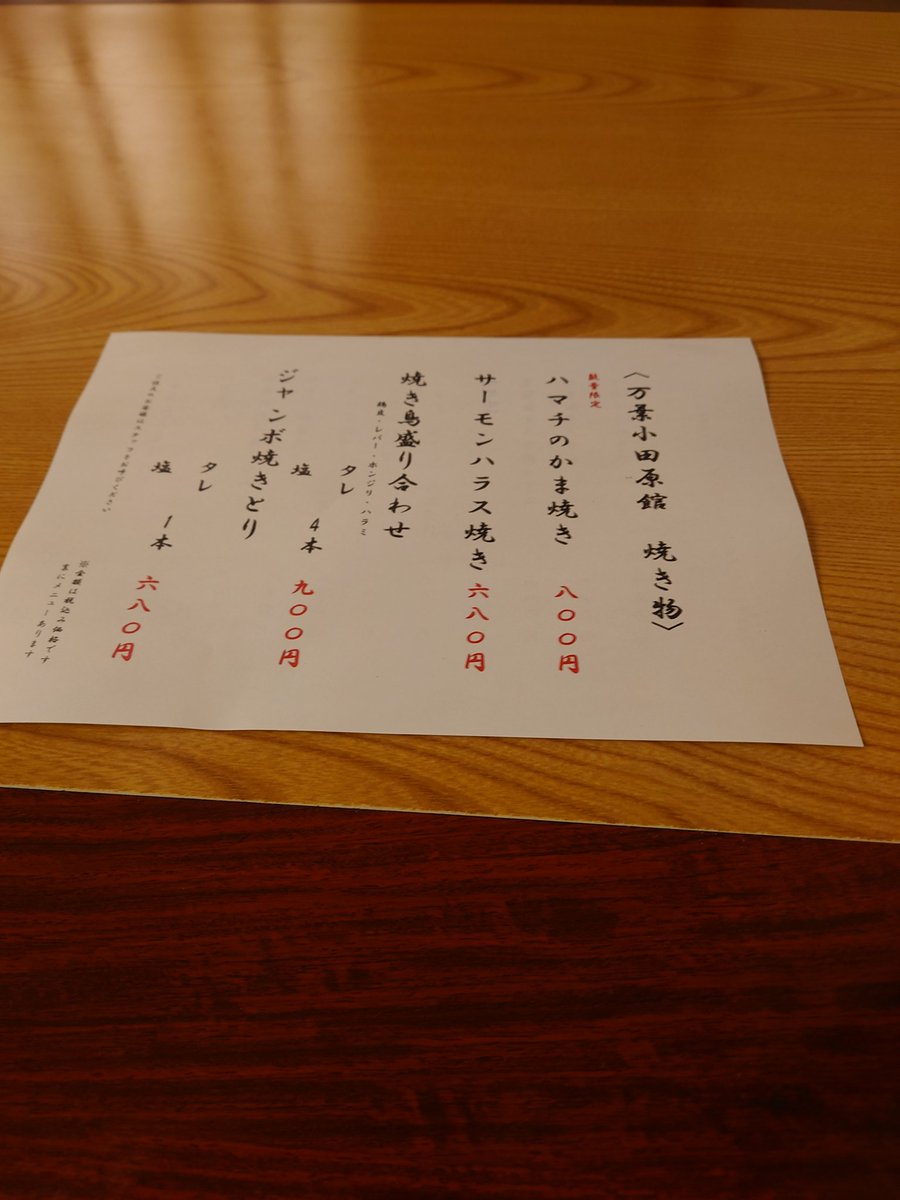 〈万葉小田原館 焼き物〉
数量限定
ハマチのかま焼き 八〇〇円
サーモンハラス焼き 六八〇円
焼き鳥盛り合わせ
鶏皮・レバー・ボンジリ・ハラミ
タレ
塩 4本 九〇〇円
ジャンボ焼きとり
タレ
塩 1本 六八〇円
ご注文のお客様はスタッフをお呼びください
※金額は税込み価格です
裏にメニューあります